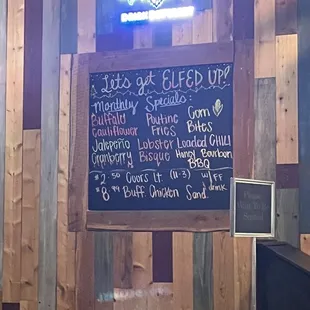 Let's get ELFED UP!
Monthly Specials:
Buffalo Cauliflower
Jalapeño Cranberry
Poutine Fries
Lobster Bisque
Corn Bites
Loaded CHILI
Honey Bourbon BBQ
$2.50 Coors Lt (11-3) w/ FF
$8.99 Buff. Chicken Sand. drink
Please
Seated